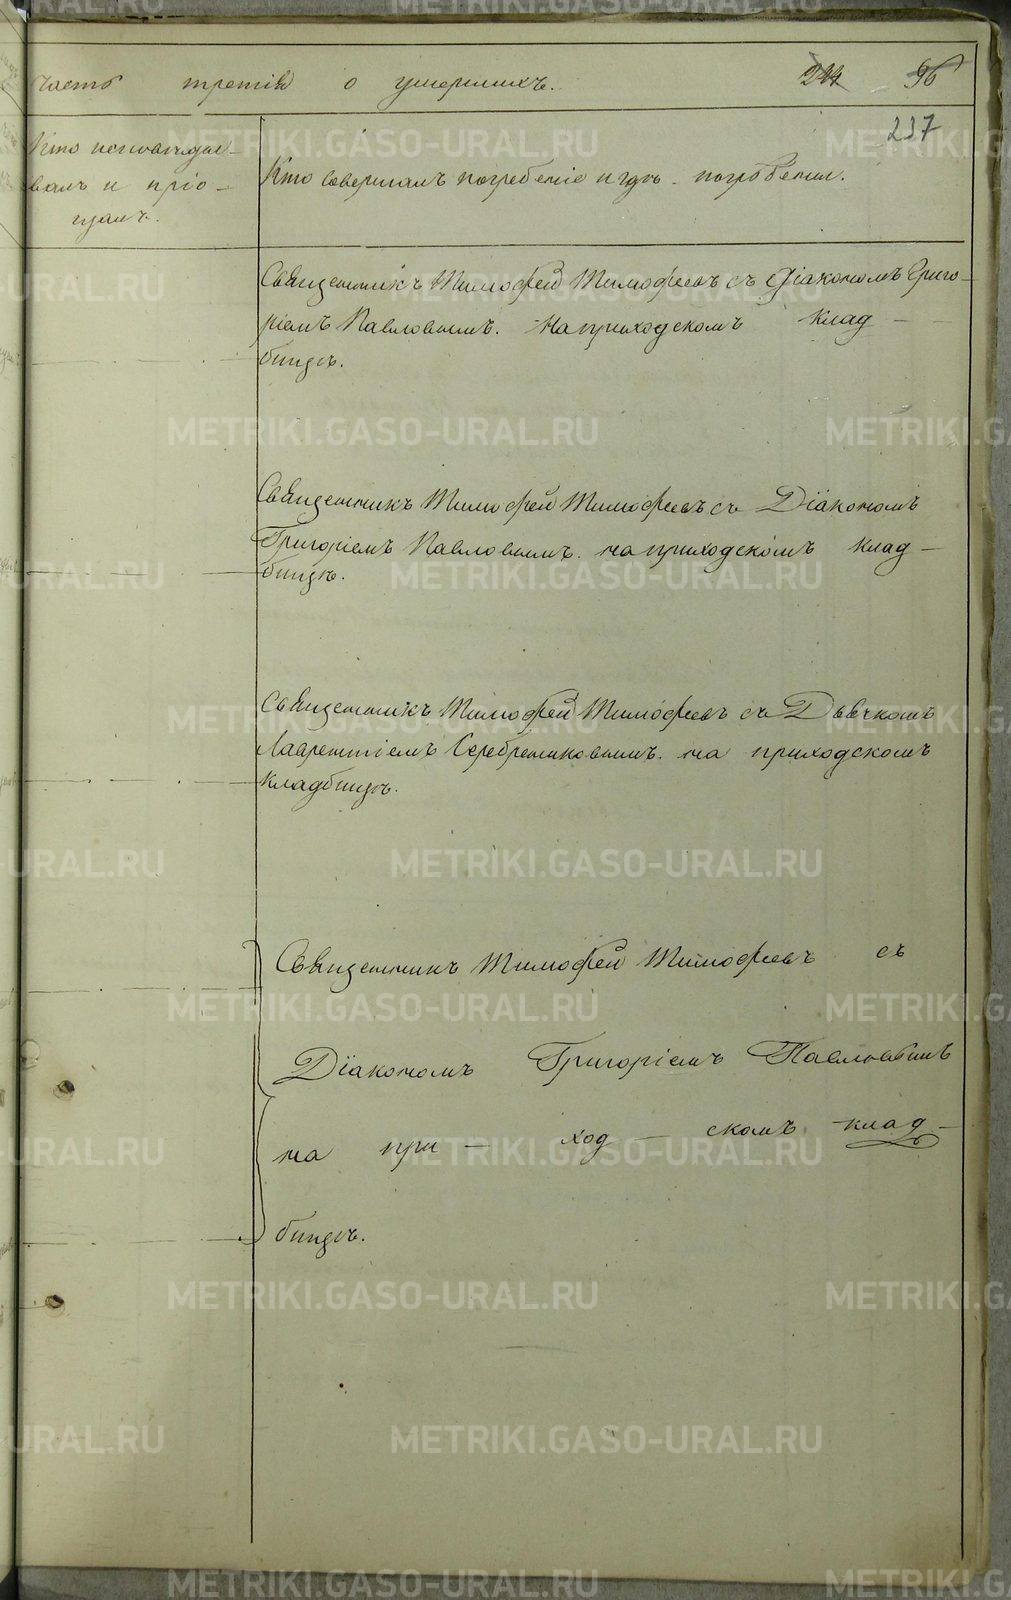 часть третія о умершихъ. 244 96
237
Кто исповѣды-
валъ и пріо-
щалъ.
Кто совершалъ погребеніе и гдѣ погребены.
Священникъ Тимофей Тимофеевъ съ Діакономъ Григо-
ріемъ Павловымъ. На приходскомъ клад-
бищѣ.
Священникъ Тимофей Тимофеевъ съ Діакономъ
Григоріемъ Павловымъ. на приходскомъ клад-
бищѣ.
Священникъ Тимофей Тимофеевъ съ Дьячкомъ
Лаврентіемъ Серебренниковымъ. на приходскомъ
кладбищѣ.
Священникъ Тимофей Тимофеевъ съ
Діакономъ Григоріемъ Павловымъ
на при - ход - скомъ клад-
бищѣ.
METRIKI.GASO-URAL.RU